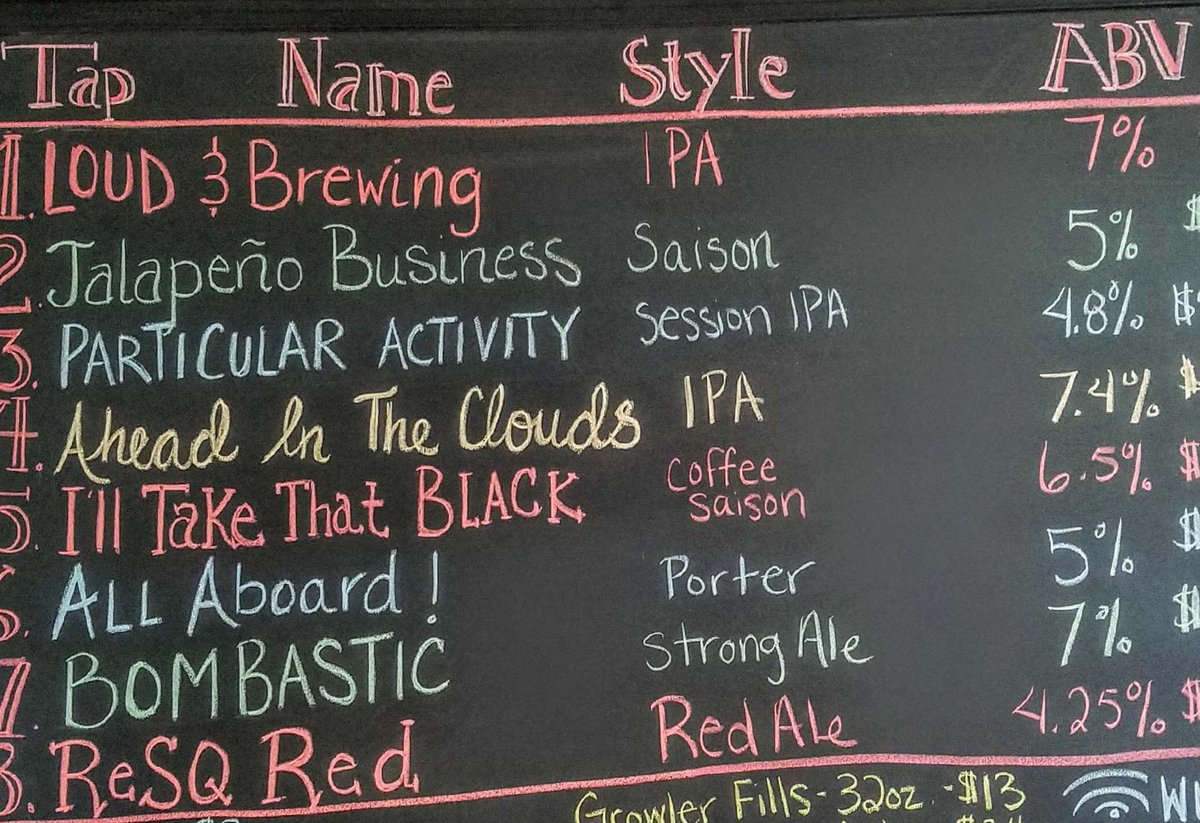 Tap Name Style ABV
1. LOUD & Brewing IPA 7%
2. Jalapeño Business Saison 5% $
3. PARTICULAR ACTIVITY Session IPA 4.8% $
4. Ahead In The Clouds IPA 7.4% $
5. I'll Take That BLACK Coffee Saison 6.5% $
6. ALL Aboard! Porter 5% $
7. BOMBASTIC Strong Ale 7% $
8. ReSQ Red Red Ale 4.25% $
Growler Fills - 32oz. - $13